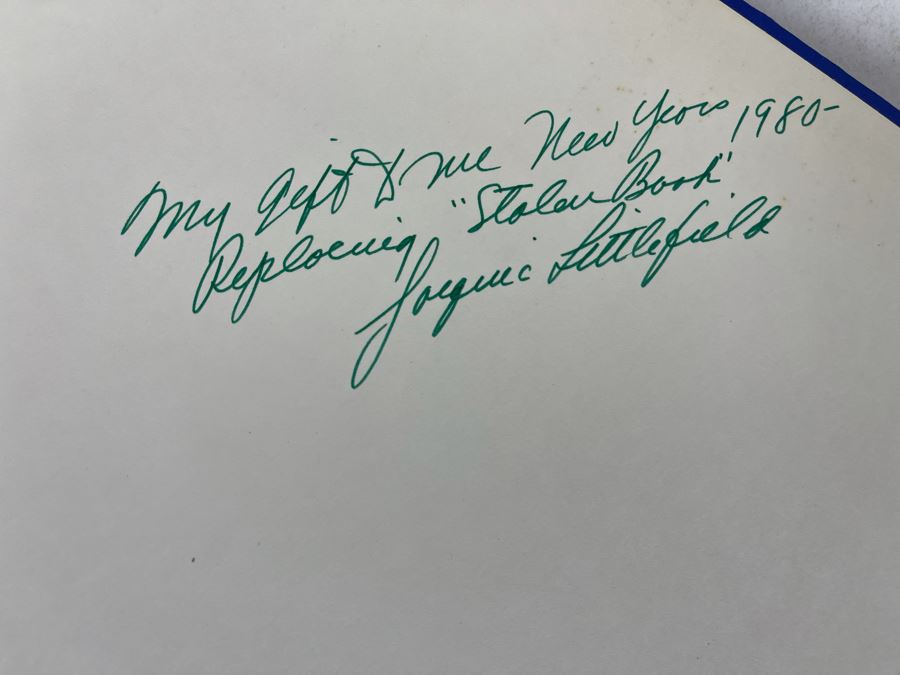 My Gift to me New Years 1980-
Replacing "Stolen Book"
Jacquie Littlefield